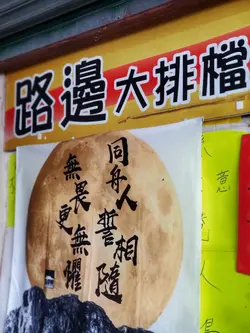 路邊大排檔
同舟人
誓相隨
無畏
更無懼
意
人